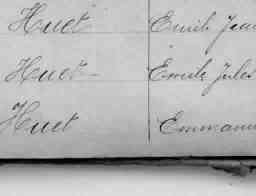 Huet Emile Jean
Huet Emile Jules
Huet Emmanu